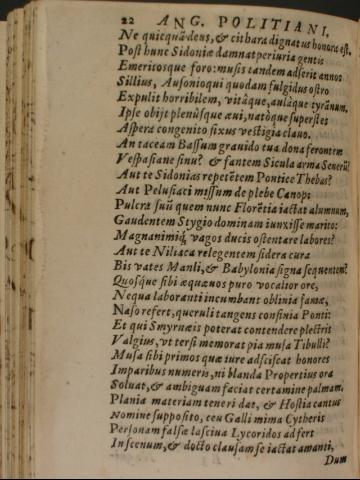 22 ANG. POLITIANI.
Ne quicquã deus, & cithara dignatus honora est.
Post hunc Sidoniæ damnat periuria gentis
Emericosque foro: musis tandem adserit annos
Sillius, Ausonioqui quodam fulgidus ostro
Expulit horribilem, vitâque, aulâque tyrãnum.
Ipse obijt plenûsque æui, natôque superstes
Aspera congenito fixus vestigia clauo.
An taceam Bassum grauido tua dona ferentem
Vespasiane sinu? & fantem Sicula arma Senerũ?
Aut te Sidonias repetẽtem Pontice Thebas?
Aut Pelusiaci missum de plebe Canopi
Pulcra suũ quem nunc Florẽtia iactat alumnum,
Gaudentem Stygio dominam iunxisse marito:
Magnanimiq́ vagos ducis ostentare labores?
Aut te Niliaca relegentem sidera cura
Bis vates Manli, & Babylonia signa sequentem?
Quosque sibi æquæuos puro vocalior ore,
Nequa laboranti incumbant obliuia famæ,
Naso refert, queruli tangens confinia Ponti:
Et qui Smyrnæis poterat contendere plectris
Valgius, vt tersi memorat pia musa Tibulli?
Musa sibi primos quæ iure adsciscat honores
Imparibus numeris, ni blanda Propertius ora
Soluat, & ambiguam faciat certamine palmam.
Plania materiam teneri dat, & Hostia cantus
Nomine supposito, ceu Galli mima Cytheris
Personam falsæ lasciua Lycoridos adfert
In scenum, & docto clausam se iactat amanti,
Dum